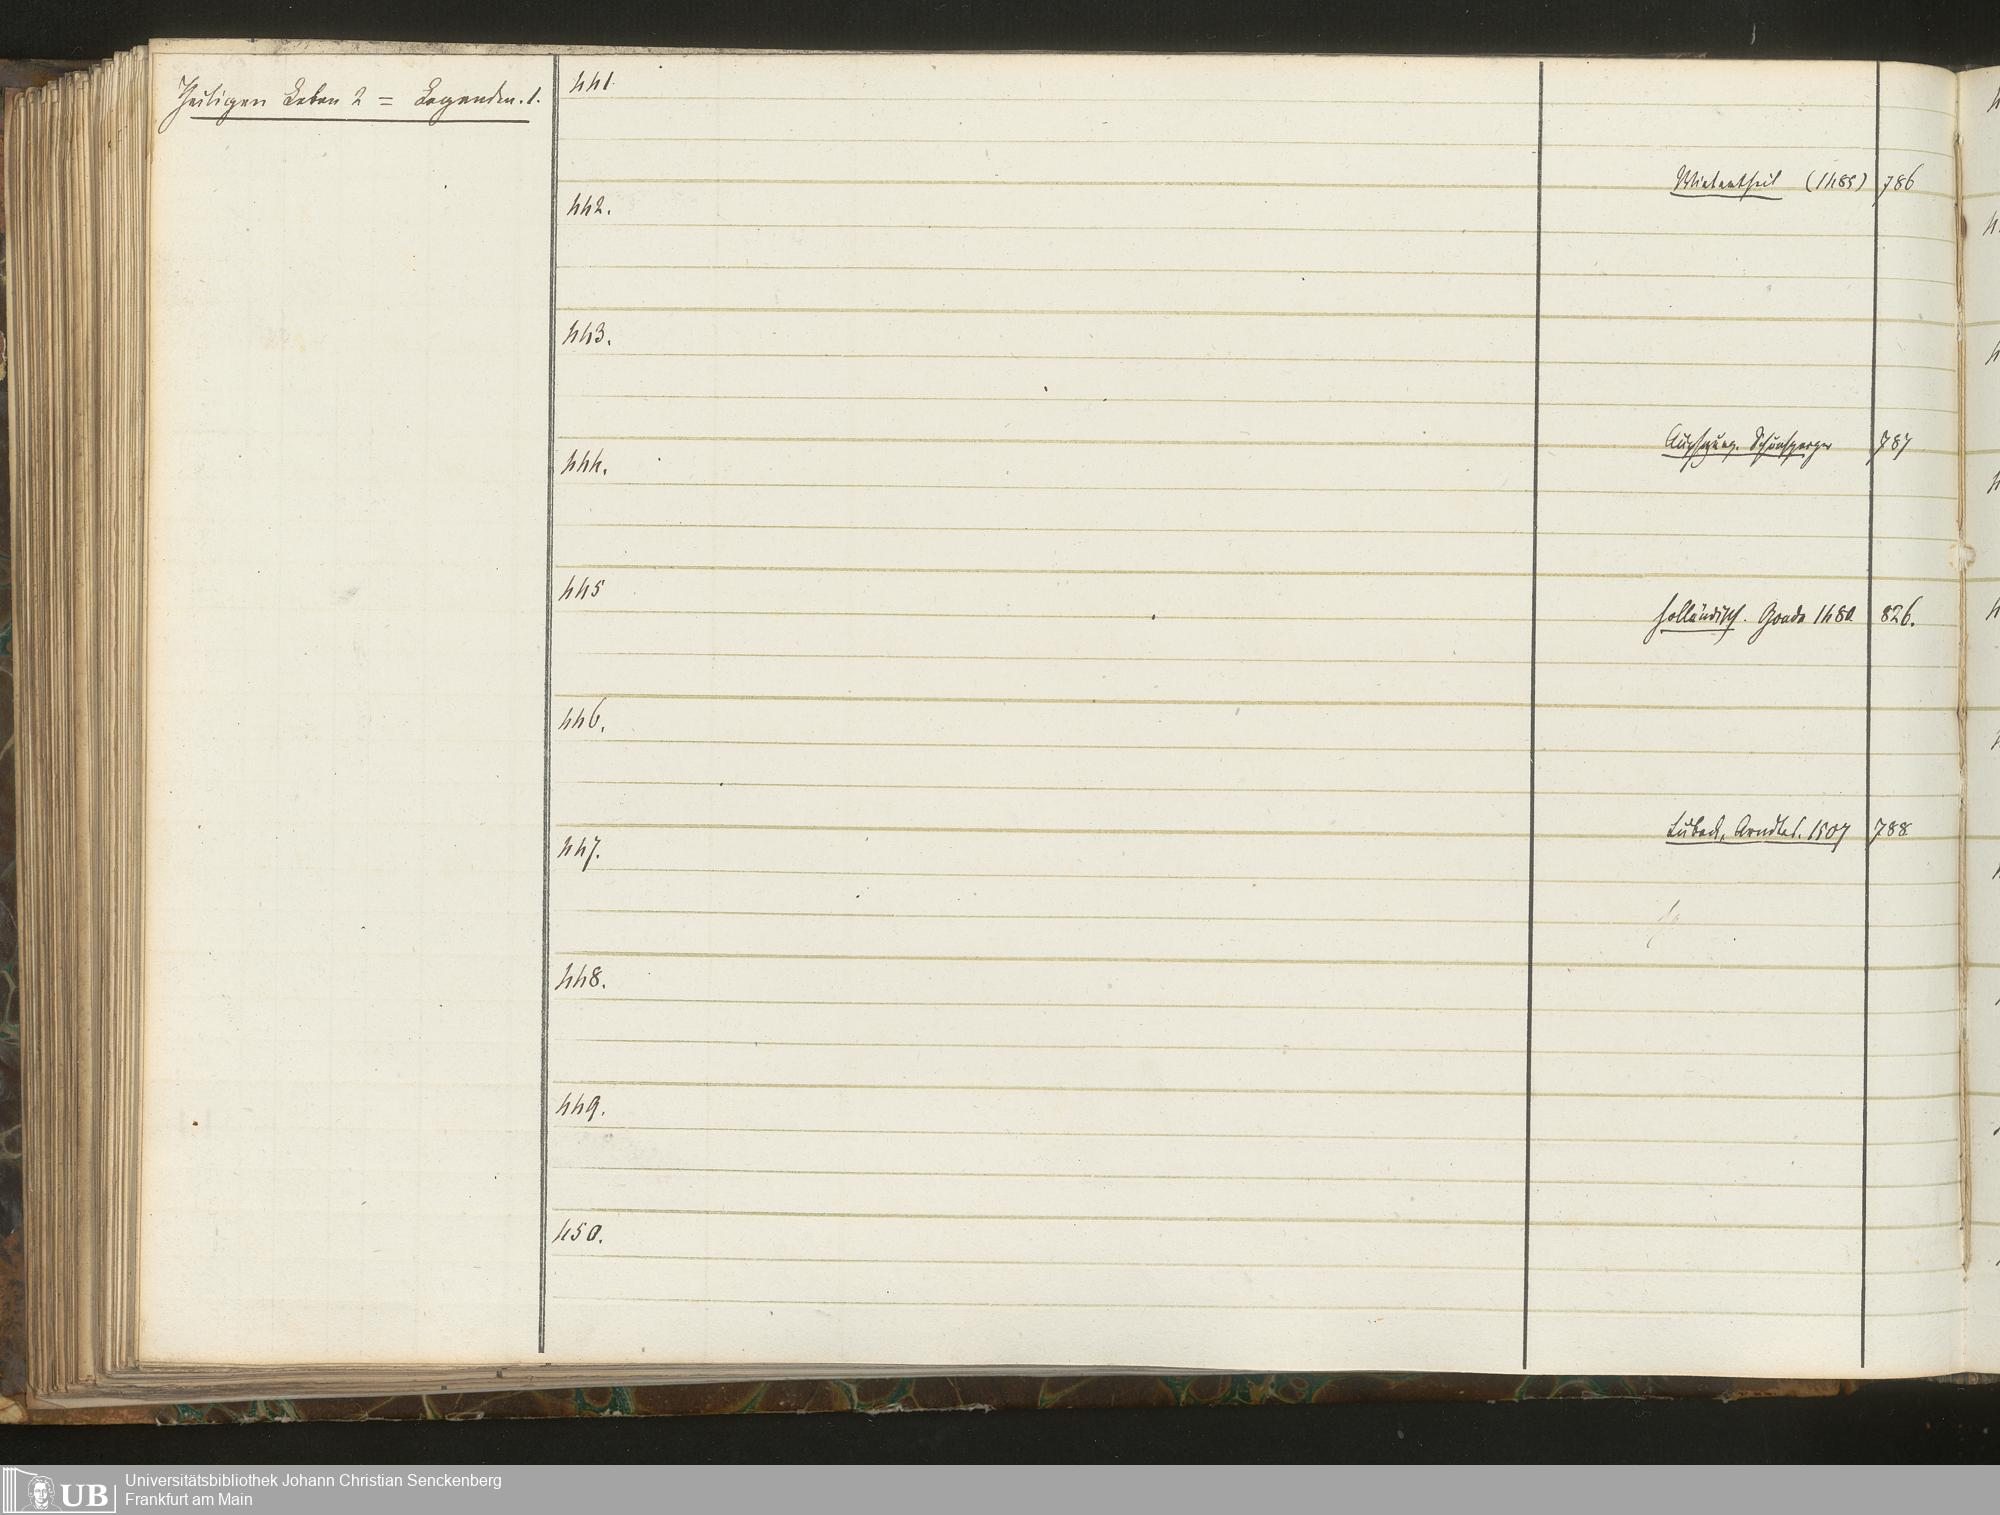 Heiligen Leben 2 = Legenden. 1.
441.
Wintertheil (1485) 786
442.
443.
Augsburg. Schönsperger 787
444.
445
holländisch. Gouda 1480 826.
446.
Lübeck, Arndes. 1507 788
447.
448.
449.
450.
UB
Universitätsbibliothek Johann Christian Senckenberg
Frankfurt am Main